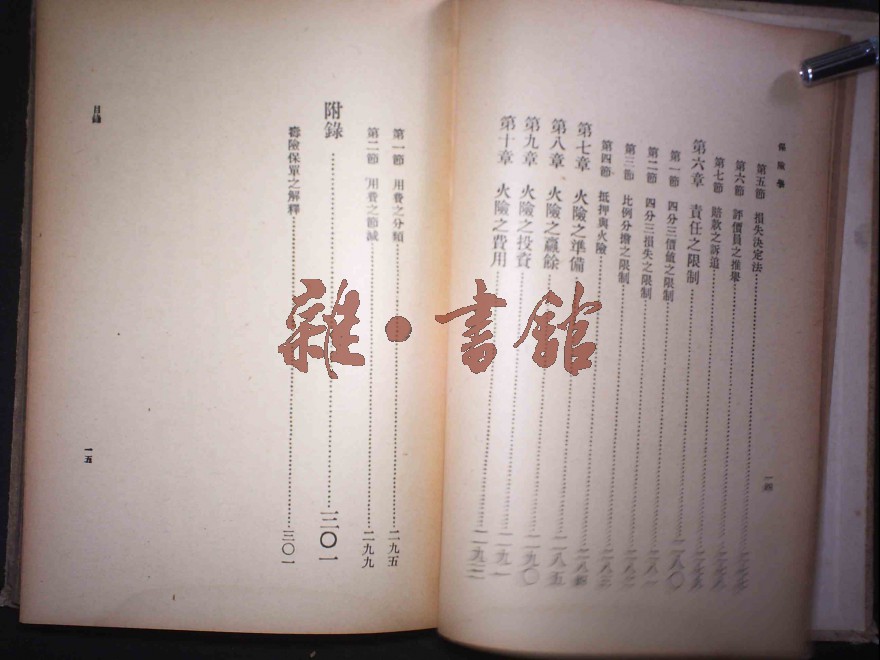 保險學
第五節　損失決定法
第六節　評價員之推舉
第七節　賠款之訴追
第六章　責任之限制
第一節　四分三價值之限制……二八〇
第二節　四分三損失之限制……二八一
第三節　比例分擔之限制
第四節　抵押與火險
第七章　火險之準備……二八四
第八章　火險之贏餘……二八五
第九章　火險之投資……二九〇
第十章　火險之費用
一四
第一節　用費之分類……二九五
第二節　用費之節減……二九九
附錄……三〇一
壽險保單之解釋……三〇一
目錄
一五
雜·書館